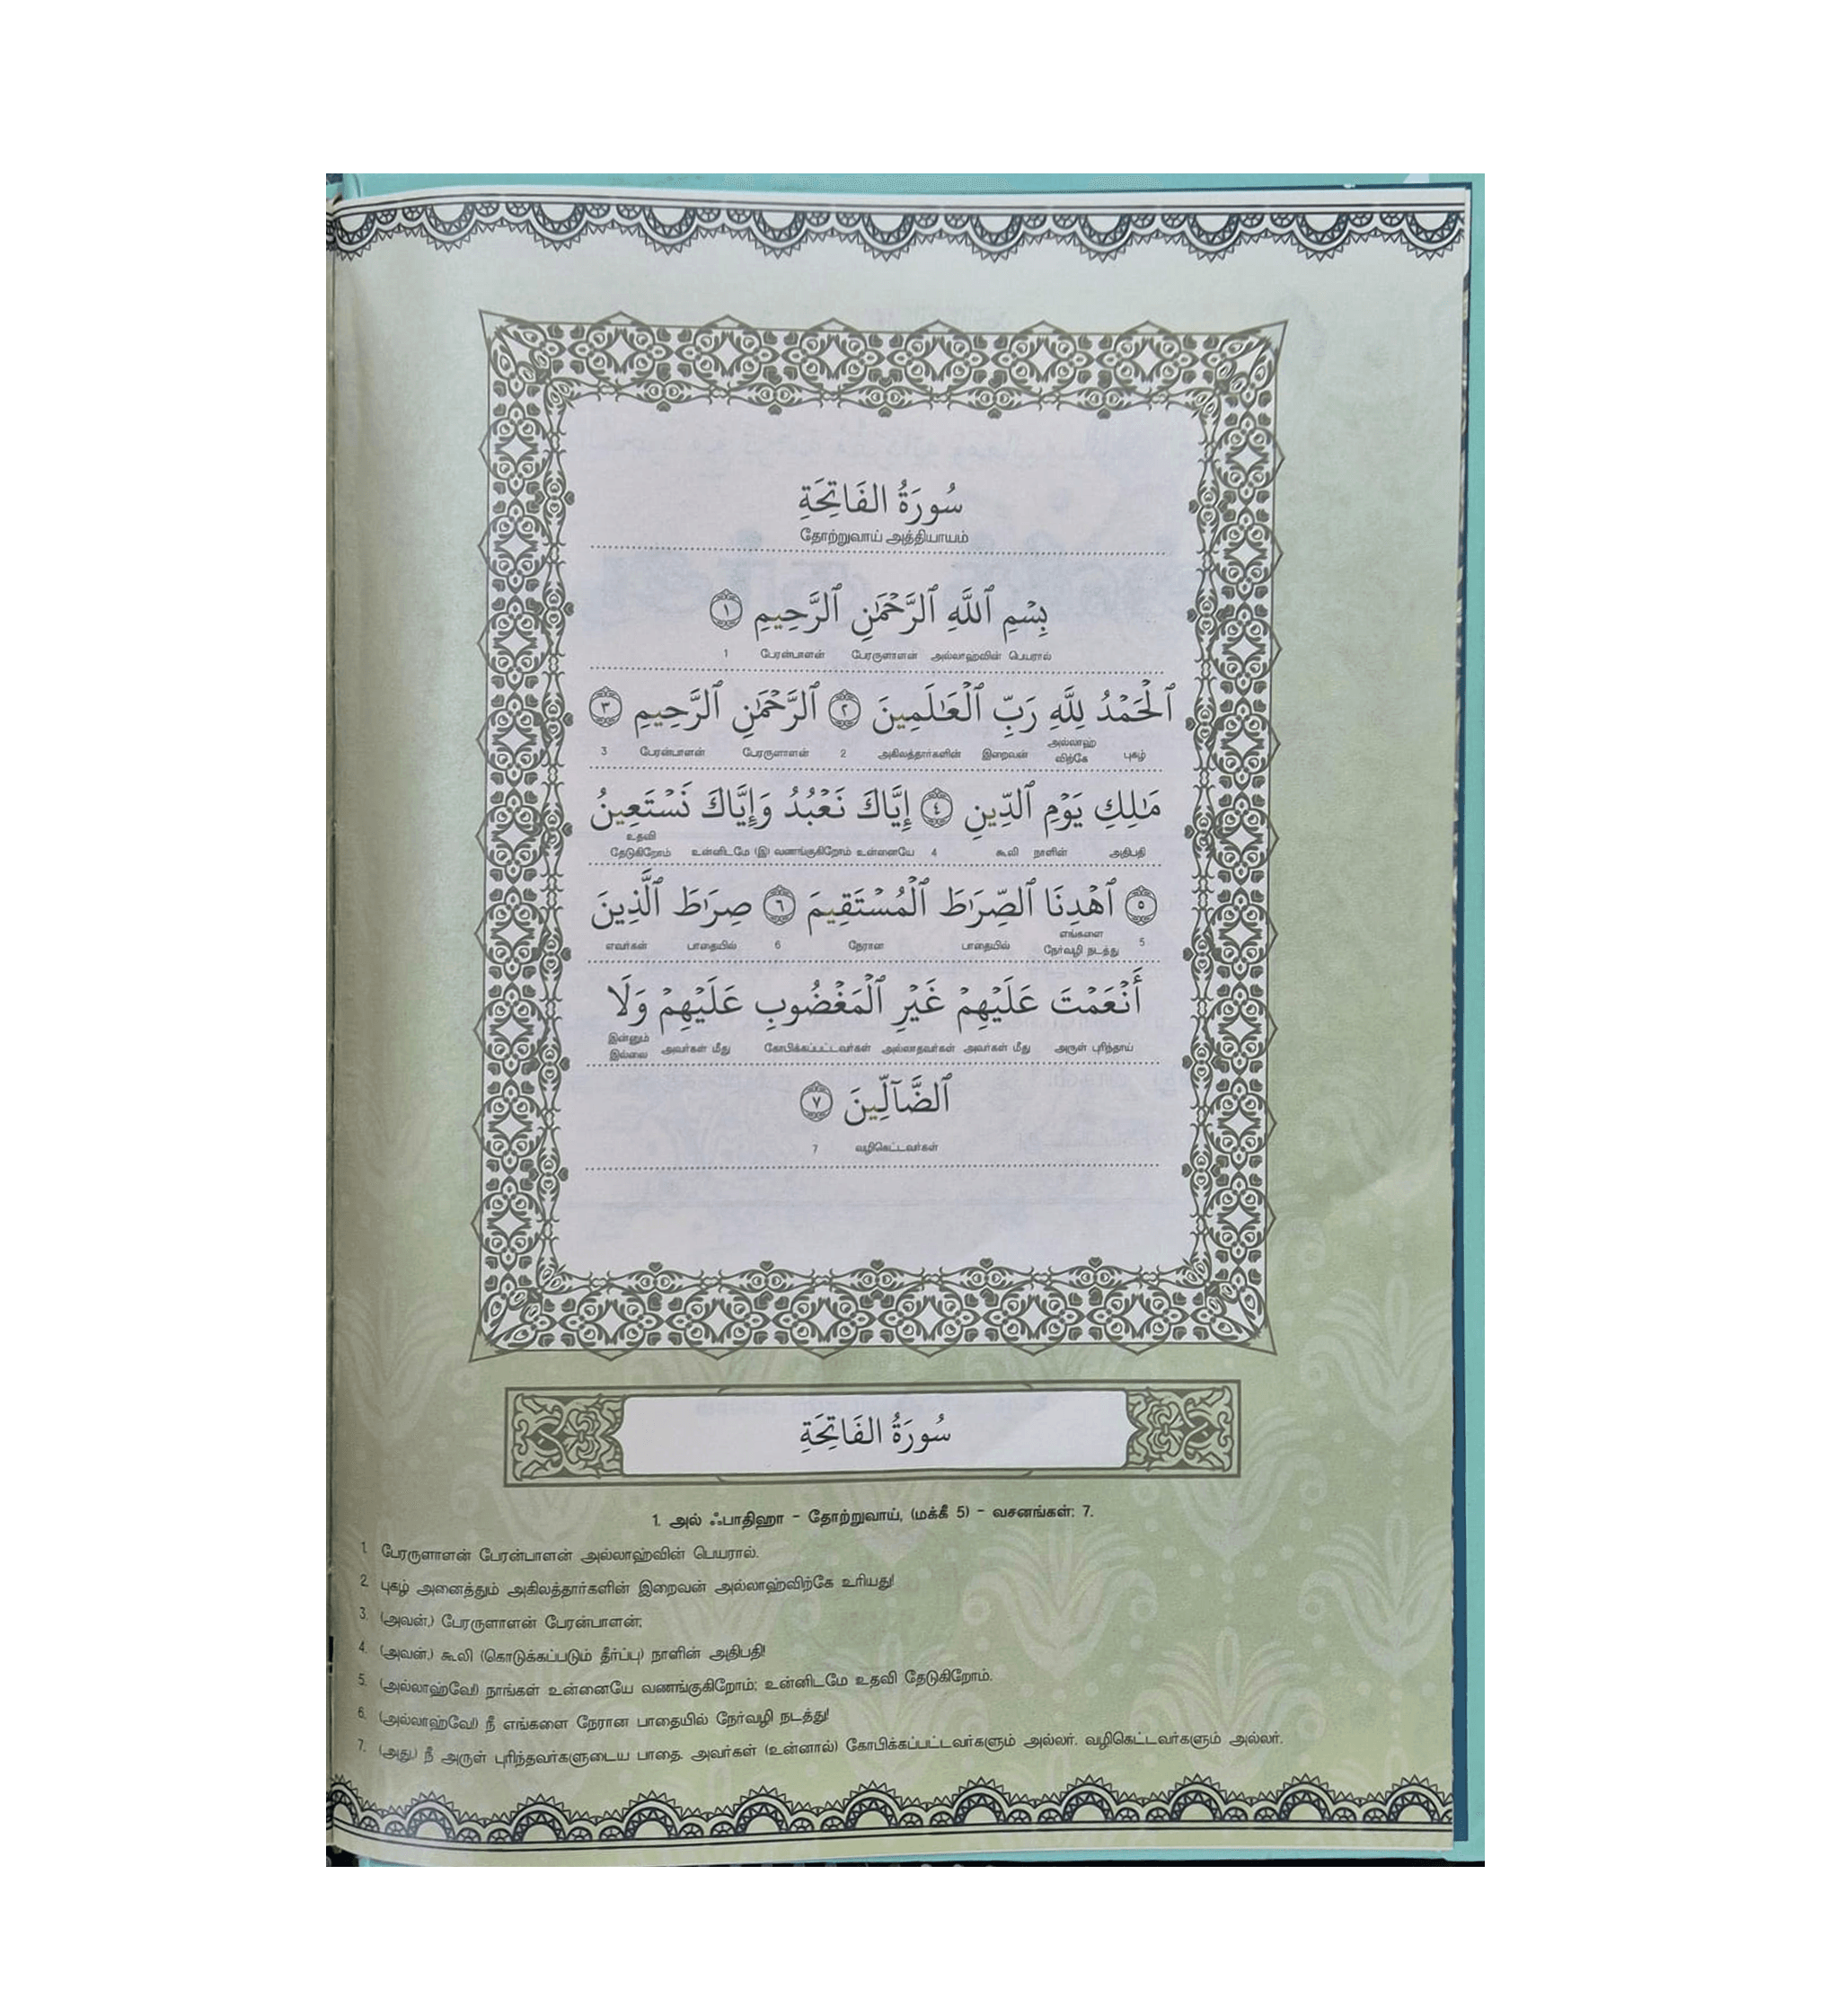 سُورَةُ الفَاتِحَةِ
தோற்றுவாய் அத்தியாயம்
بِسْمِ ٱللَّهِ ٱلرَّحْمَٰنِ ٱلرَّحِيمِ ١
பெயரால் அல்லாஹ்வின் பேரருளாளன் பேரன்பாளன் 1
ٱلْحَمْدُ لِلَّهِ رَبِّ ٱلْعَـٰلَمِينَ ٢ ٱلرَّحْمَٰنِ ٱلرَّحِيمِ ٣
புகழ் அல்லாஹ் விற்கே இறைவன் அகிலத்தார்களின் 2 பேரருளாளன் பேரன்பாளன் 3
مَـٰلِكِ يَوْمِ ٱلدِّينِ ٤ إِيَّاكَ نَعْبُدُ وَإِيَّاكَ نَسْتَعِينُ
அதிபதி நாளின் கூலி 4 உன்னையே வணங்குகிறோம் (இ) உன்னிடமே உதவி தேடுகிறோம்
٥ ٱهْدِنَا ٱلصِّرَٰطَ ٱلْمُسْتَقِيمَ ٦ صِرَٰطَ ٱلَّذِينَ
5 எங்களை நேர்வழி நடத்து பாதையில் நேரான 6 பாதையில் எவர்கள்
أَنْعَمْتَ عَلَيْهِمْ غَيْرِ ٱلْمَغْضُوبِ عَلَيْهِمْ وَلَا
அருள் புரிந்தாய் அவர்கள் மீது அல்லாதவர்கள் கோபிக்கப்பட்டவர்கள் அவர்கள் மீது இன்னும் இல்லை
ٱلضَّآلِّينَ ٧
வழிகெட்டவர்கள் 7
سُورَةُ الفَاتِحَةِ
1. அல் ஃபாதிஹா – தோற்றுவாய், (மக்கீ 5) – வசனங்கள்: 7.
1. பேரருளாளன் பேரன்பாளன் அல்லாஹ்வின் பெயரால்.
2. புகழ் அனைத்தும் அகிலத்தார்களின் இறைவன் அல்லாஹ்விற்கே உரியது!
3. (அவன்,) பேரருளாளன் பேரன்பாளன்;
4. (அவன்,) கூலி (கொடுக்கப்படும் தீர்ப்பு) நாளின் அதிபதி!
5. (அல்லாஹ்வே!) நாங்கள் உன்னையே வணங்குகிறோம்; உன்னிடமே உதவி தேடுகிறோம்.
6. (அல்லாஹ்வே!) நீ எங்களை நேரான பாதையில் நேர்வழி நடத்து!
7. (அது,) நீ அருள் புரிந்தவர்களுடைய பாதை. அவர்கள் (உன்னால்) கோபிக்கப்பட்டவர்களும் அல்லர். வழிகெட்டவர்களும் அல்லர்.